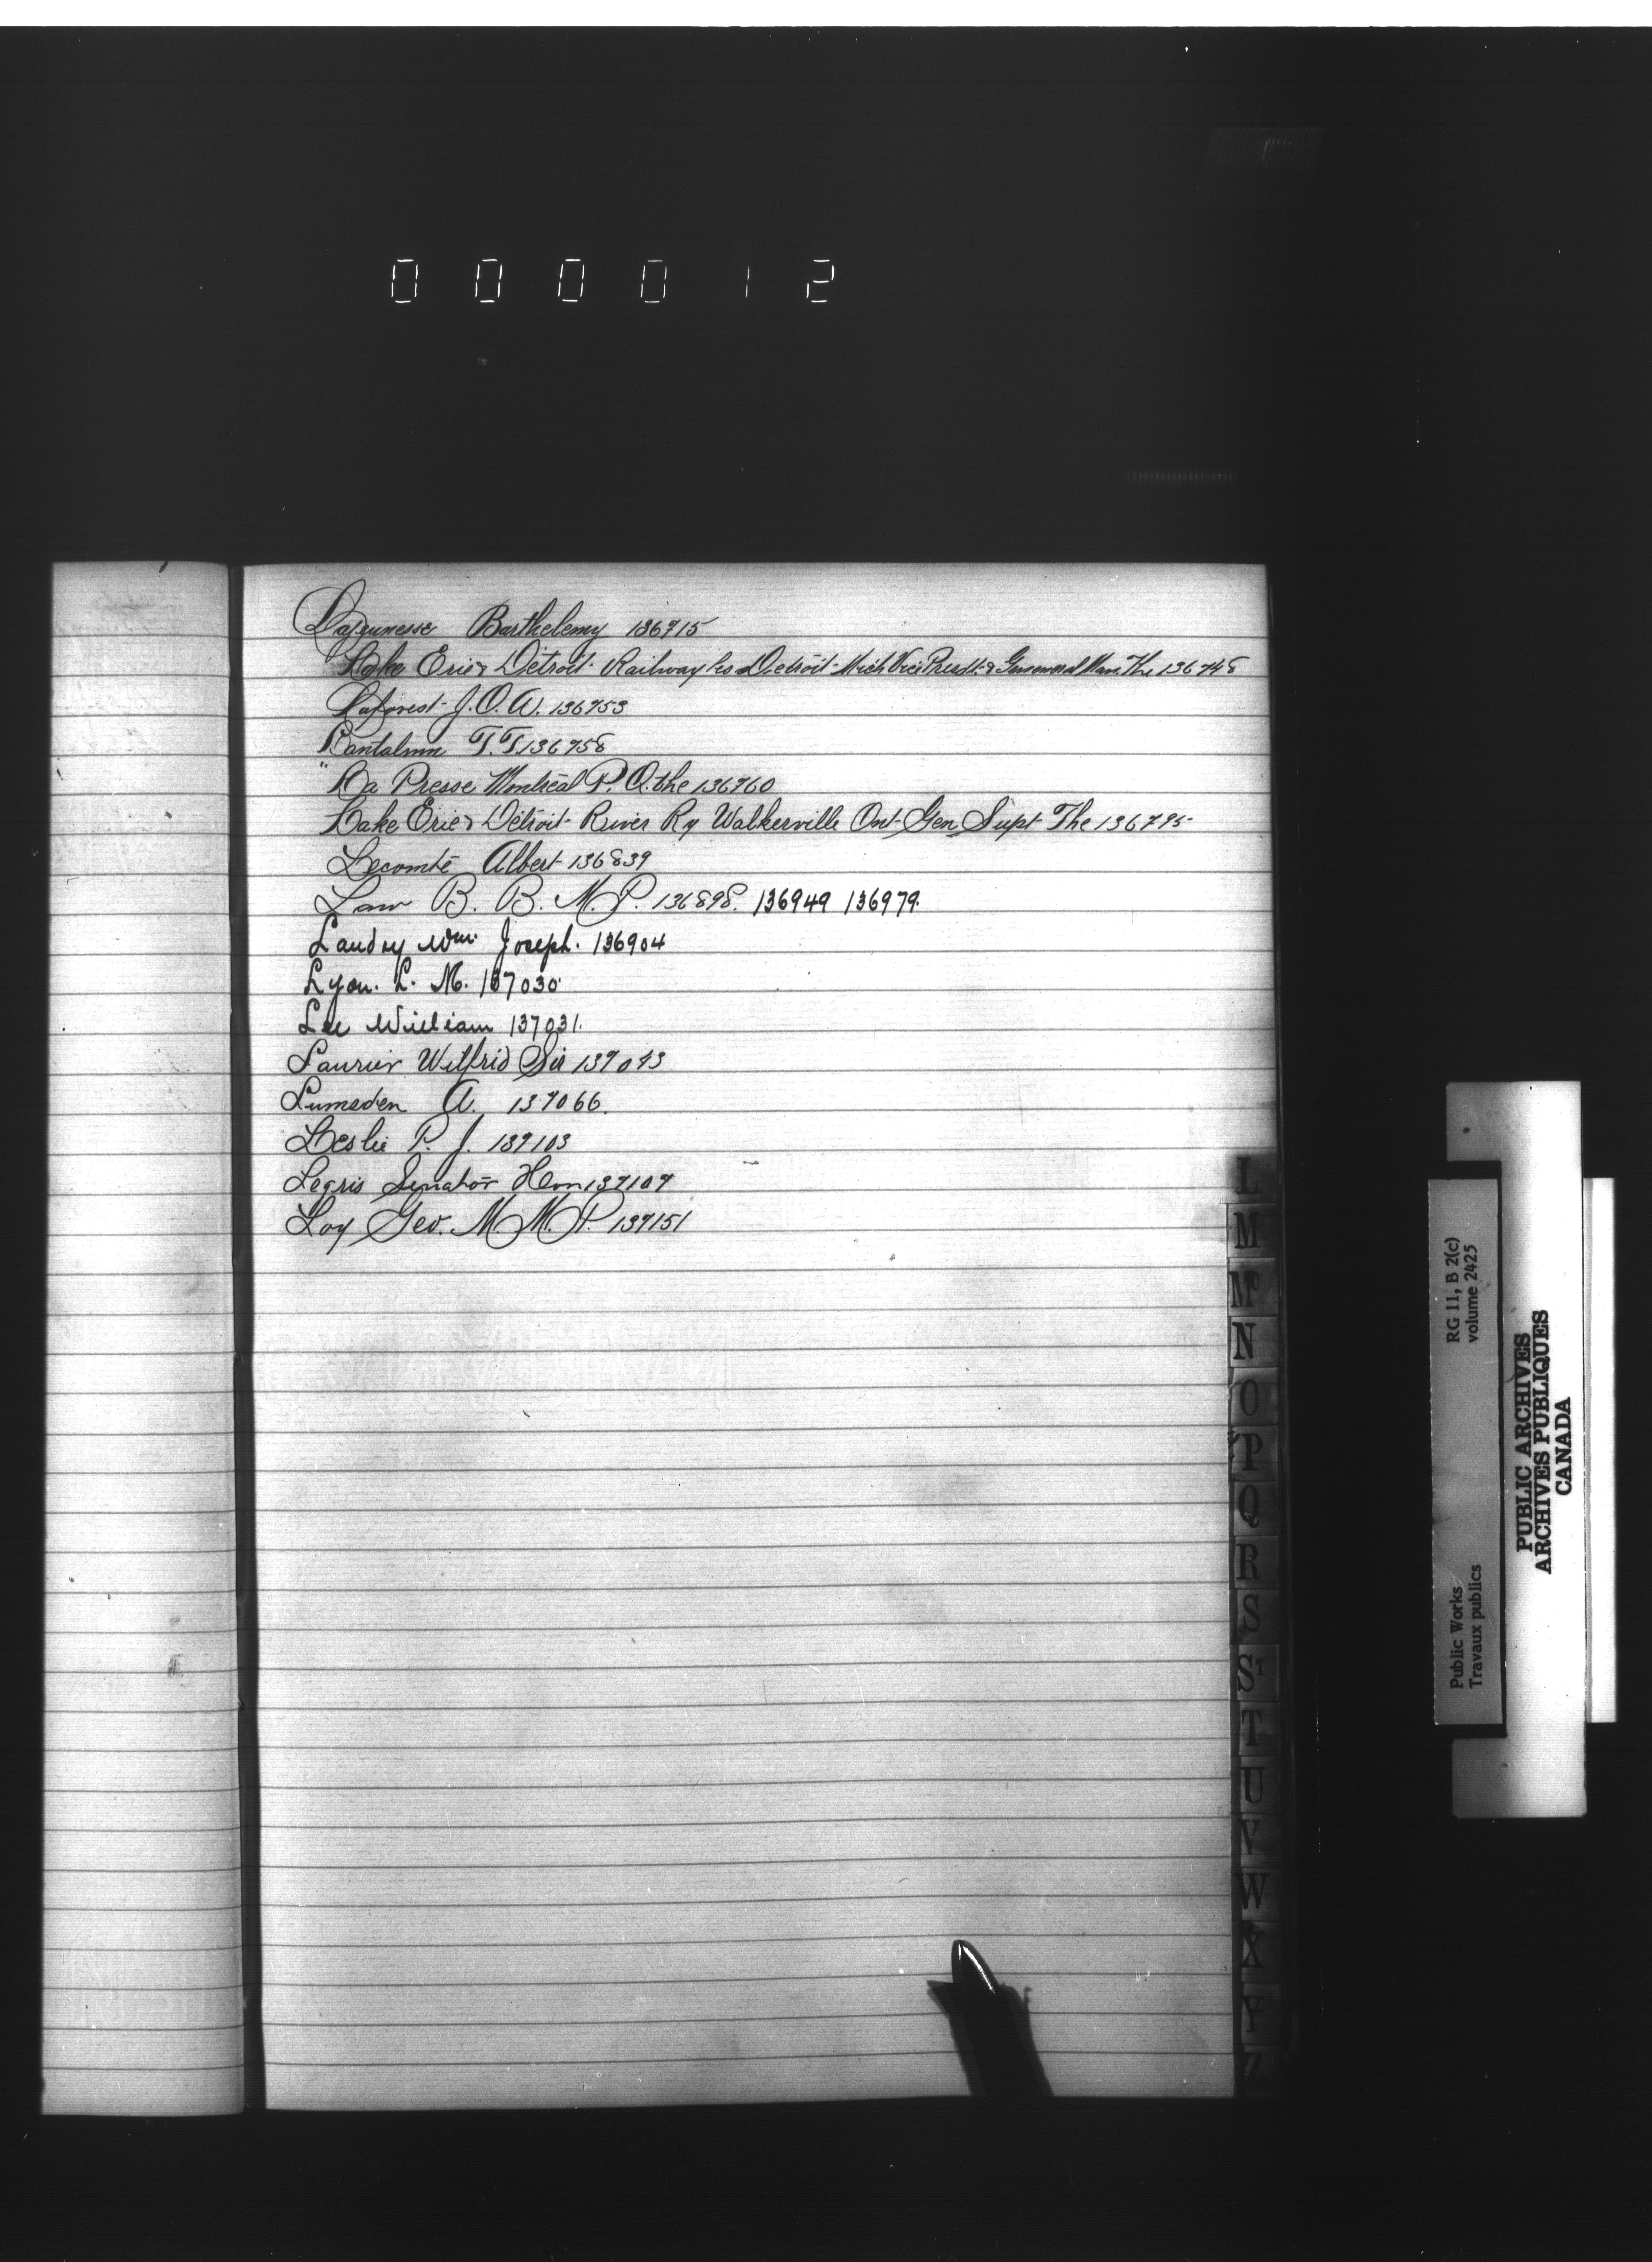 000012
Lajeunesse Barthelemy 136715
Lake Erie & Detroit Railway Co Detroit Mich Vice Presdt. & General Man. The 136748
Laforest J. O. A. 136753
T. T. 136758
"La Presse Montreal P. Q. the 136760
Lake Erie & Detroit River Ry Walkerville Ont Gen Supt The 136795
Lecomte Albert 136839
Law B. B. M. P. 136898. 136949 136979.
Landry Wm. Joseph. 136904
Lyon. L. M. 137030
Lee William 137031.
Laurier Wilfrid Sir 137043
Lumsden A. 137066.
Leslie P. J. 137103
Legris Senator Hon 137107
Loy Geo. M M. P. 137151
L
M
Mc
N
O
P
Q
R
S
St
T
U
V
W
X
Y
Z
Public Works
Travaux publics
RG 11, B 2(c)
volume 2425
PUBLIC ARCHIVES
ARCHIVES PUBLIQUES
CANADA